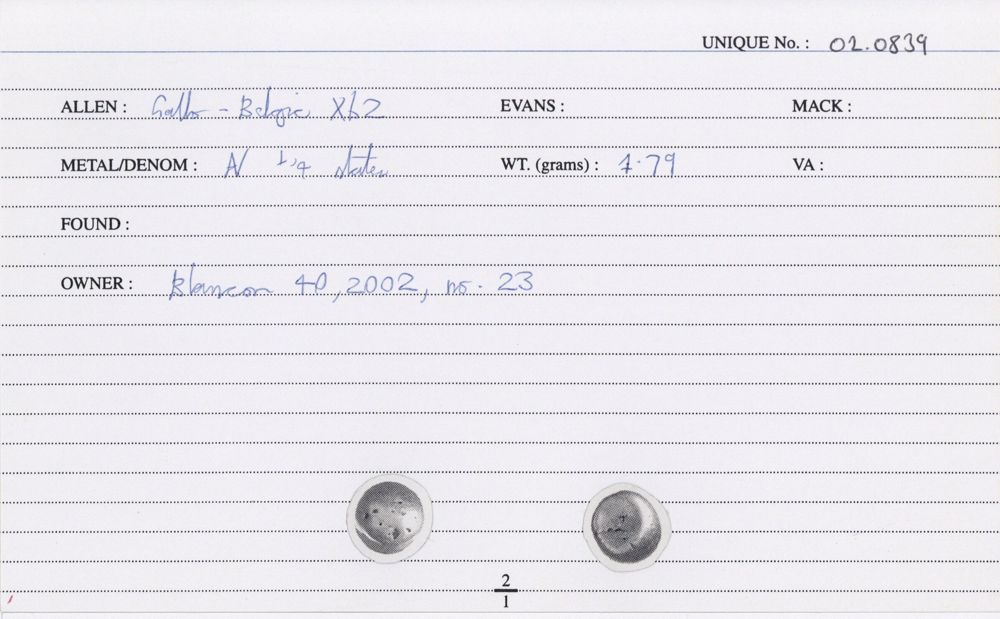 UNIQUE No. : 02.0839
ALLEN : Gallo-Belgic Xb2 EVANS : MACK :
METAL/DENOM : AV 1/4 stater WT. (grams) : 1.79 VA :
FOUND :
OWNER : Blancon 40, 2002, no. 23
2
1